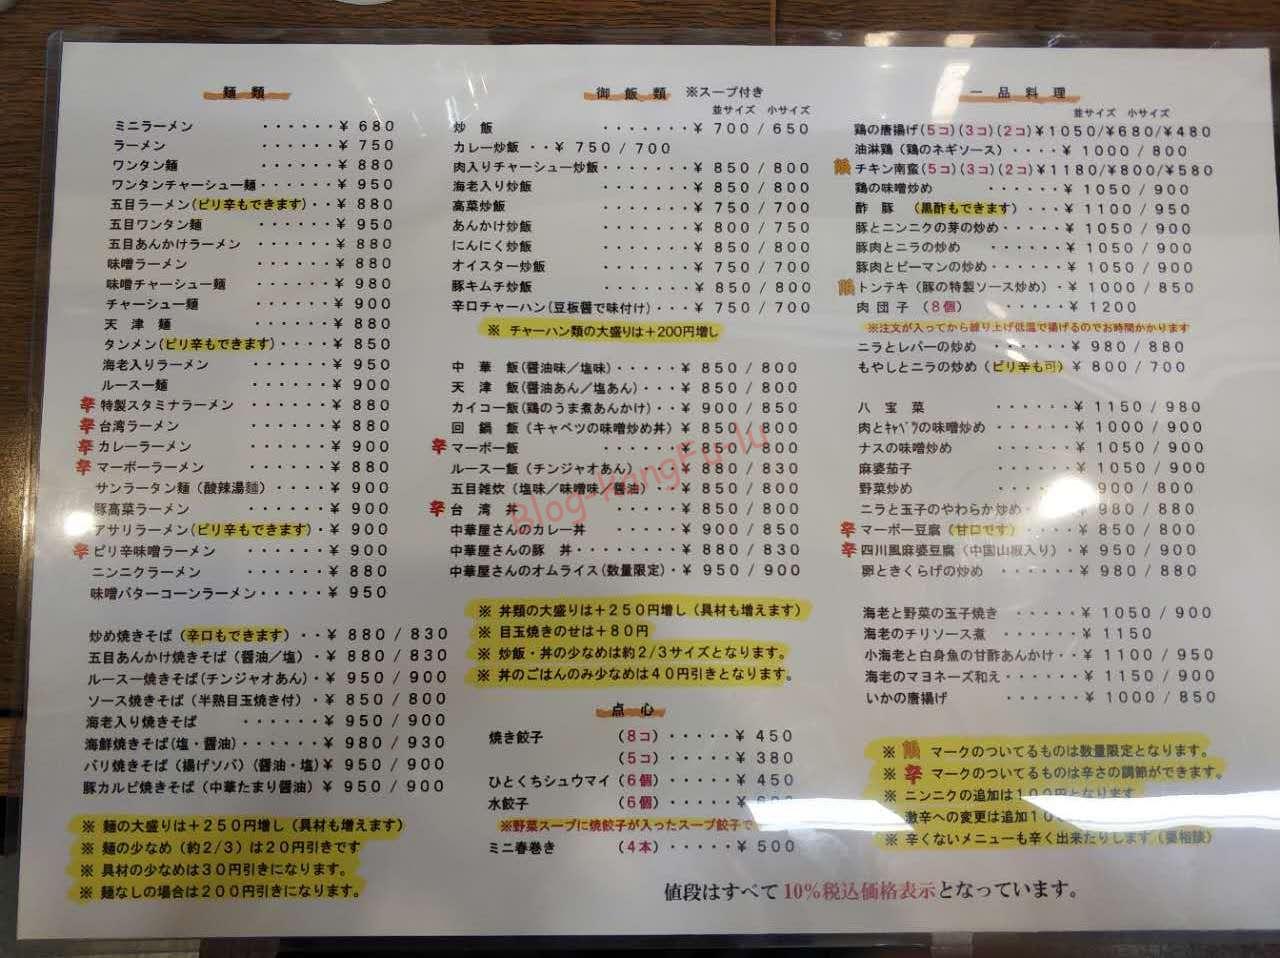 麺類
ミニラーメン ・・・・・・¥ 680
ラーメン ・・・・・・¥ 750
ワンタン麺 ・・・・・・¥ 880
ワンタンチャーシュー麺・・・・・・¥ 950
五目ラーメン(ピリ辛もできます)・・¥ 880
五目ワンタン麺 ・・・・・・¥ 950
五目あんかけラーメン ・・・・・¥ 880
味噌ラーメン ・・・・・・¥ 880
味噌チャーシュー麺 ・・・・・・¥ 980
チャーシュー麺 ・・・・・・¥ 900
天 津 麺 ・・・・・・¥ 880
タンメン(ピリ辛もできます)・・・・¥ 850
海老入りラーメン ・・・・・・¥ 950
ルースー麺 ・・・・・・¥ 900
辛 特製スタミナラーメン ・・・・・¥ 880
辛 台湾ラーメン ・・・・・・¥ 880
辛 カレーラーメン ・・・・・・¥ 900
辛 マーボーラーメン ・・・・・・¥ 880
サンラータン麺(酸辣湯麺)・・・・¥ 950
豚高菜ラーメン ・・・・・・¥ 900
アサリラーメン(ピリ辛もできます)・¥ 900
辛 ピリ辛味噌ラーメン ・・・・・・¥ 900
ニンニクラーメン ・・・・・・¥ 880
味噌バターコーンラーメン・・・・・¥ 950
炒め焼きそば(辛口もできます)・・¥ 880 / 830
五目あんかけ焼きそば(醤油/塩)・¥ 880 / 830
ルースー焼きそば(チンジャオあん)・¥ 950 / 900
ソース焼きそば(半熟目玉焼き付)・¥ 850 / 800
海老入り焼きそば ・・・・・・¥ 950 / 900
海鮮焼きそば(塩・醤油)・・・・・¥ 980 / 930
バリ焼きそば(揚げソバ)(醤油・塩)¥ 950 / 900
豚カルビ焼きそば(中華たまり醤油)・¥ 950 / 900
※ 麺の大盛りは+250円増し(具材も増えます)
※ 麺の少なめ(約2/3)は20円引きです
※ 具材の少なめは30円引きになります。
※ 麺なしの場合は200円引きになります。
御飯類 ※スープ付き
並サイズ 小サイズ
炒 飯 ・・・・・・・¥ 700 / 650
カレー炒飯 ・・¥ 750 / 700
肉入りチャーシュー炒飯・・・・・・・¥ 850 / 800
海老入り炒飯 ・・・・・・・¥ 850 / 800
高菜炒飯 ・・・・・・・¥ 750 / 700
あんかけ炒飯 ・・・・・・・¥ 800 / 750
にんにく炒飯 ・・・・・・・¥ 850 / 800
オイスター炒飯 ・・・・・・・¥ 750 / 700
豚キムチ炒飯 ・・・・・・・¥ 850 / 800
辛口チャーハン(豆板醤で味付け)・・・¥ 750 / 700
※ チャーハン類の大盛りは+200円増し
中 華 飯(醤油味/塩味)・・・・・¥ 850 / 800
天 津 飯(醤油あん/塩あん)・・・¥ 850 / 800
カイコー飯(鶏のうま煮あんかけ)・・¥ 900 / 850
回 鍋 飯(キャベツの味噌炒め丼)・¥ 850 / 800
辛 マーボー飯 ・・・・・・・¥ 850 / 800
ルースー飯(チンジャオあん)・・・・¥ 880 / 830
五目雑炊(塩味/味噌味/醤油)・・・¥ 850 / 800
辛 台 湾 丼 ・・・・・・・¥ 850 / 800
中華屋さんのカレー丼 ・・・・・・¥ 900 / 850
中華屋さんの豚 丼・・・・・・・・¥ 880 / 830
中華屋さんのオムライス(数量限定)・¥ 950 / 900
※ 丼類の大盛りは+250円増し(具材も増えます)
※ 目玉焼きのせは+80円
※ 炒飯・丼の少なめは約2/3サイズとなります。
※ 丼のごはんのみ少なめは40円引きとなります。
点 心
焼き餃子 (8コ)・・・・・¥ 450
(5コ)・・・・・¥ 380
ひとくちシュウマイ(6個)・・・・・¥ 450
水餃子 (6個)・・・・・¥
※野菜スープに焼餃子が入ったスープ餃子で
ミニ春巻き (4本)・・・・・¥ 500
一品料理
並サイズ 小サイズ
鶏の唐揚げ(5コ)(3コ)(2コ)¥1050/¥680/¥480
油淋鶏(鶏のネギソース)・・・・¥ 1000 / 800
限 チキン南蛮(5コ)(3コ)(2コ)¥1180/¥800/¥580
鶏の味噌炒め ・・・・・・¥ 1050 / 900
酢 豚 (黒酢もできます)・・・¥ 1100 / 950
豚とニンニクの芽の炒め・・・・・¥ 1050 / 900
豚肉とニラの炒め ・・・・・・¥ 1050 / 900
豚肉とピーマンの炒め・・・・・・¥ 1050 / 900
限 トンテキ(豚の特製ソース炒め)・¥ 1000 / 850
肉 団 子 (8個) ・・・・・¥ 1200
※注文が入ってから練り上げ低温で揚げるのでお時間かかります
ニラとレバーの炒め ・・・・・・¥ 980 / 880
もやしとニラの炒め(ピリ辛も可)¥ 800 / 700
八 宝 菜 ・・・・・・¥ 1150 / 980
肉とキャベツの味噌炒め・・・・・・¥ 1000 / 900
ナスの味噌炒め ・・・・・・¥ 1050 / 900
麻婆茄子 ・・・・・・¥ 1050 / 900
野菜炒め ・・・・・・¥ 900 / 800
ニラと玉子のやわらか炒め・・・・¥ 980 / 880
辛 マーボー豆腐(甘口です)・・・・¥ 850 / 800
辛 四川風麻婆豆腐(中国山椒入り)・¥ 950 / 900
卵ときくらげの炒め ・・・・・・¥ 980 / 880
海老と野菜の玉子焼き ・・・・・¥ 1050 / 900
海老のチリソース煮 ・・・・・・¥ 1150
小海老と白身魚の甘酢あんかけ・・¥ 1100 / 950
海老のマヨネーズ和え・・・・・・¥ 1150 / 900
いかの唐揚げ ・・・・・・¥ 1000 / 850
※ 限 マークのついてるものは数量限定となります。
※ 辛 マークのついてるものは辛さの調節ができます。
※ ニンニクの追加は100円となります
激辛への変更は追加10
※ 辛くないメニューも辛く出来たりします(要相談)
値段はすべて10%税込価格表示となっています。
Blog-KangFu-lu